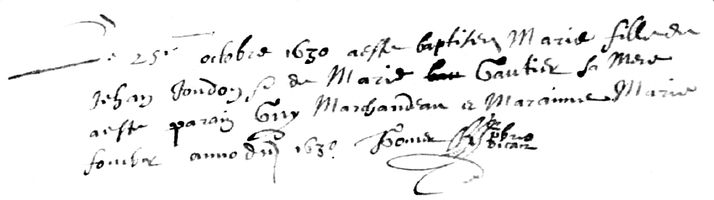 Le 25e octobre 1630 aeste baptisee Marie fille de
Jehan Jondon & de Marie Gautier sa Mere
aeste parain Guy Marchandeau et Marainne Marie
anno dni 1630
vicair